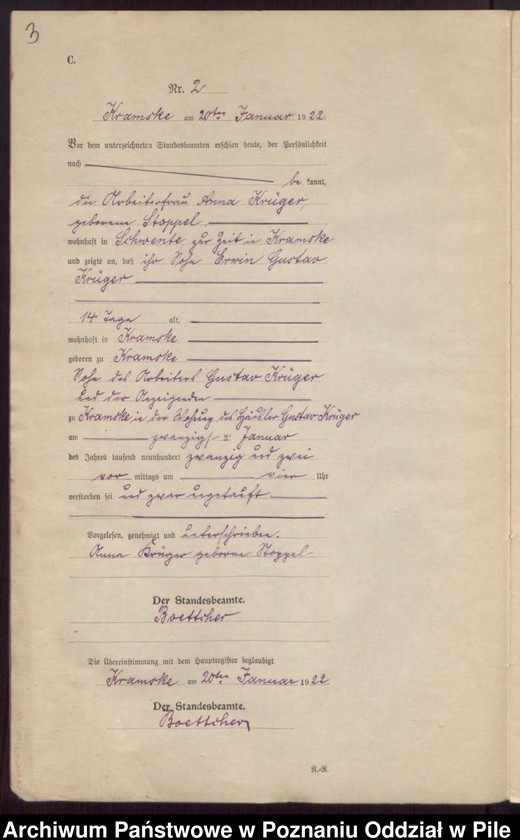 3
C.
Nr. 2
Kramske am 20ten Januar 1922
Vor dem unterzeichneten Standesbeamten erschien heute, der Persönlichkeit
nach
be kannt,
die Arbeiterfrau Anna Krüger,
geborene Stoppel
wohnhaft in Schwente, zur Zeit in Kramske
und zeigte an, daß ihr Sohn Erwin Gustav
Krüger
14 Tage alt,
wohnhaft in Kramske
geboren zu Kramske
Sohn des Arbeiters Gustav Krüger
und der Anzeigenden
zu Kramske in der Wohnung des Häusler Gustav Krüger
am zwanzigsten Januar
des Jahres tausend neunhundert zwanzig und zwei
vor mittags um vier Uhr
verstorben sei und zwar ungetauft
Vorgelesen, genehmigt und unterschrieben.
Anna Krüger geborene Stoppel
Der Standesbeamte.
Boettcher
Die Übereinstimmung mit dem Hauptregister beglaubigt
Kramske am 20ten Januar 1922
Der Standesbeamte.
Boettcher
Archiwum Państwowe w Poznaniu Oddział w Pile